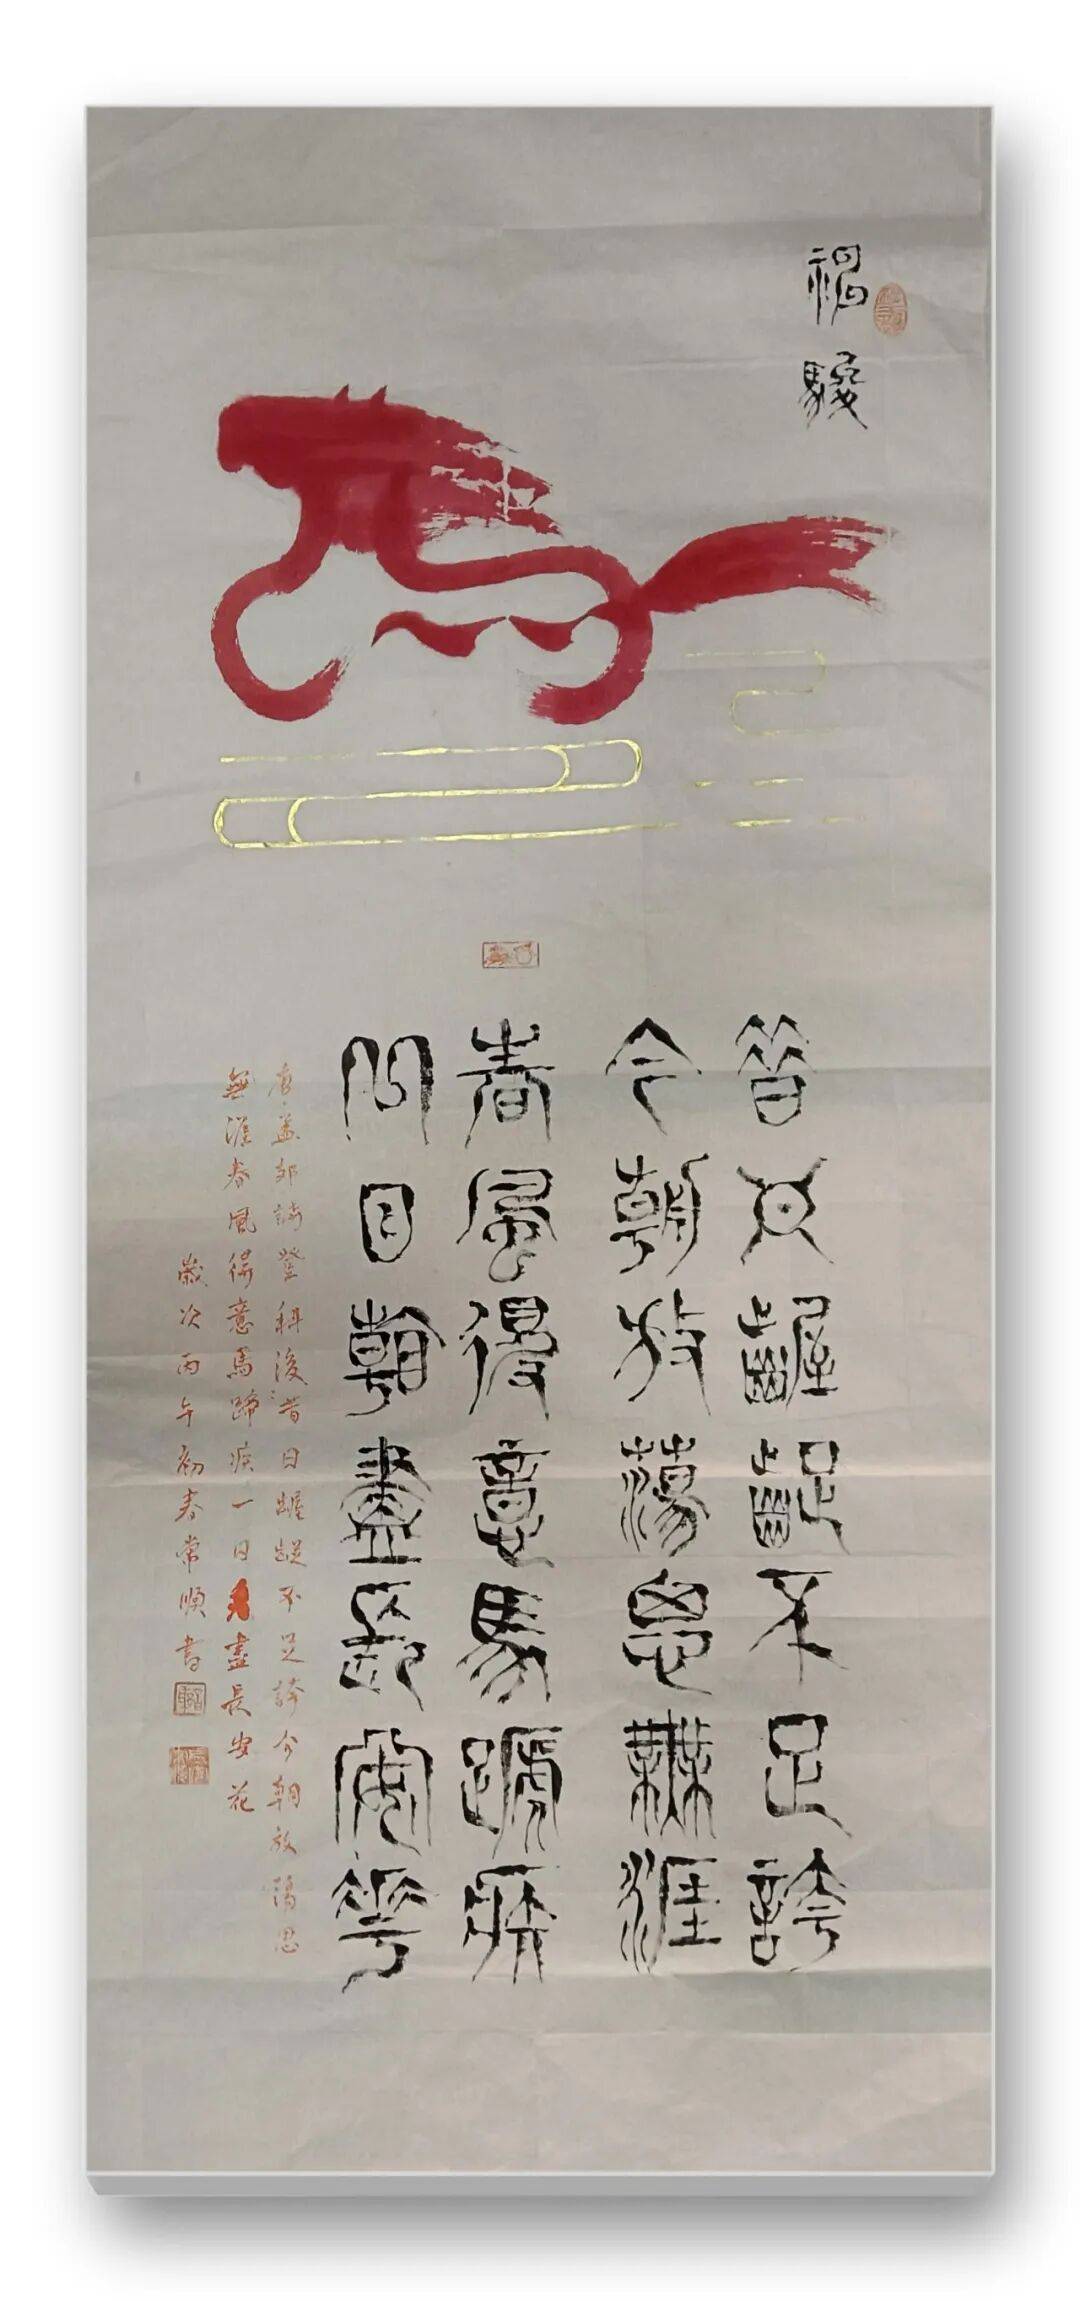 神駿
昔日齷齪不足誇
今朝放蕩思無涯
春風得意馬蹄疾
一日看盡長安花
唐孟郊詩登科後昔日齷齪不足誇今朝放蕩思
無涯春風得意馬蹄疾一日看盡長安花
歲次丙午初春常順書